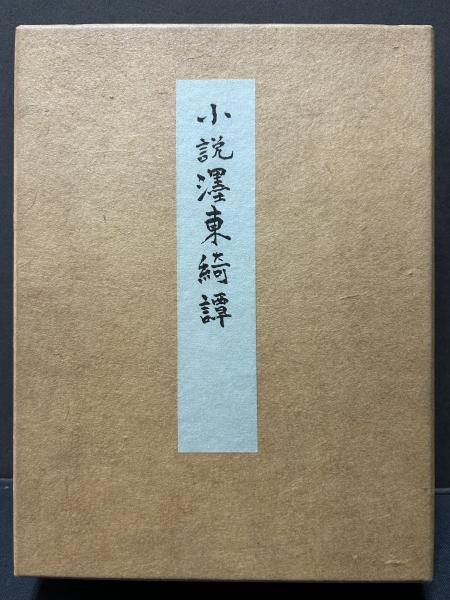 小説濹東綺譚